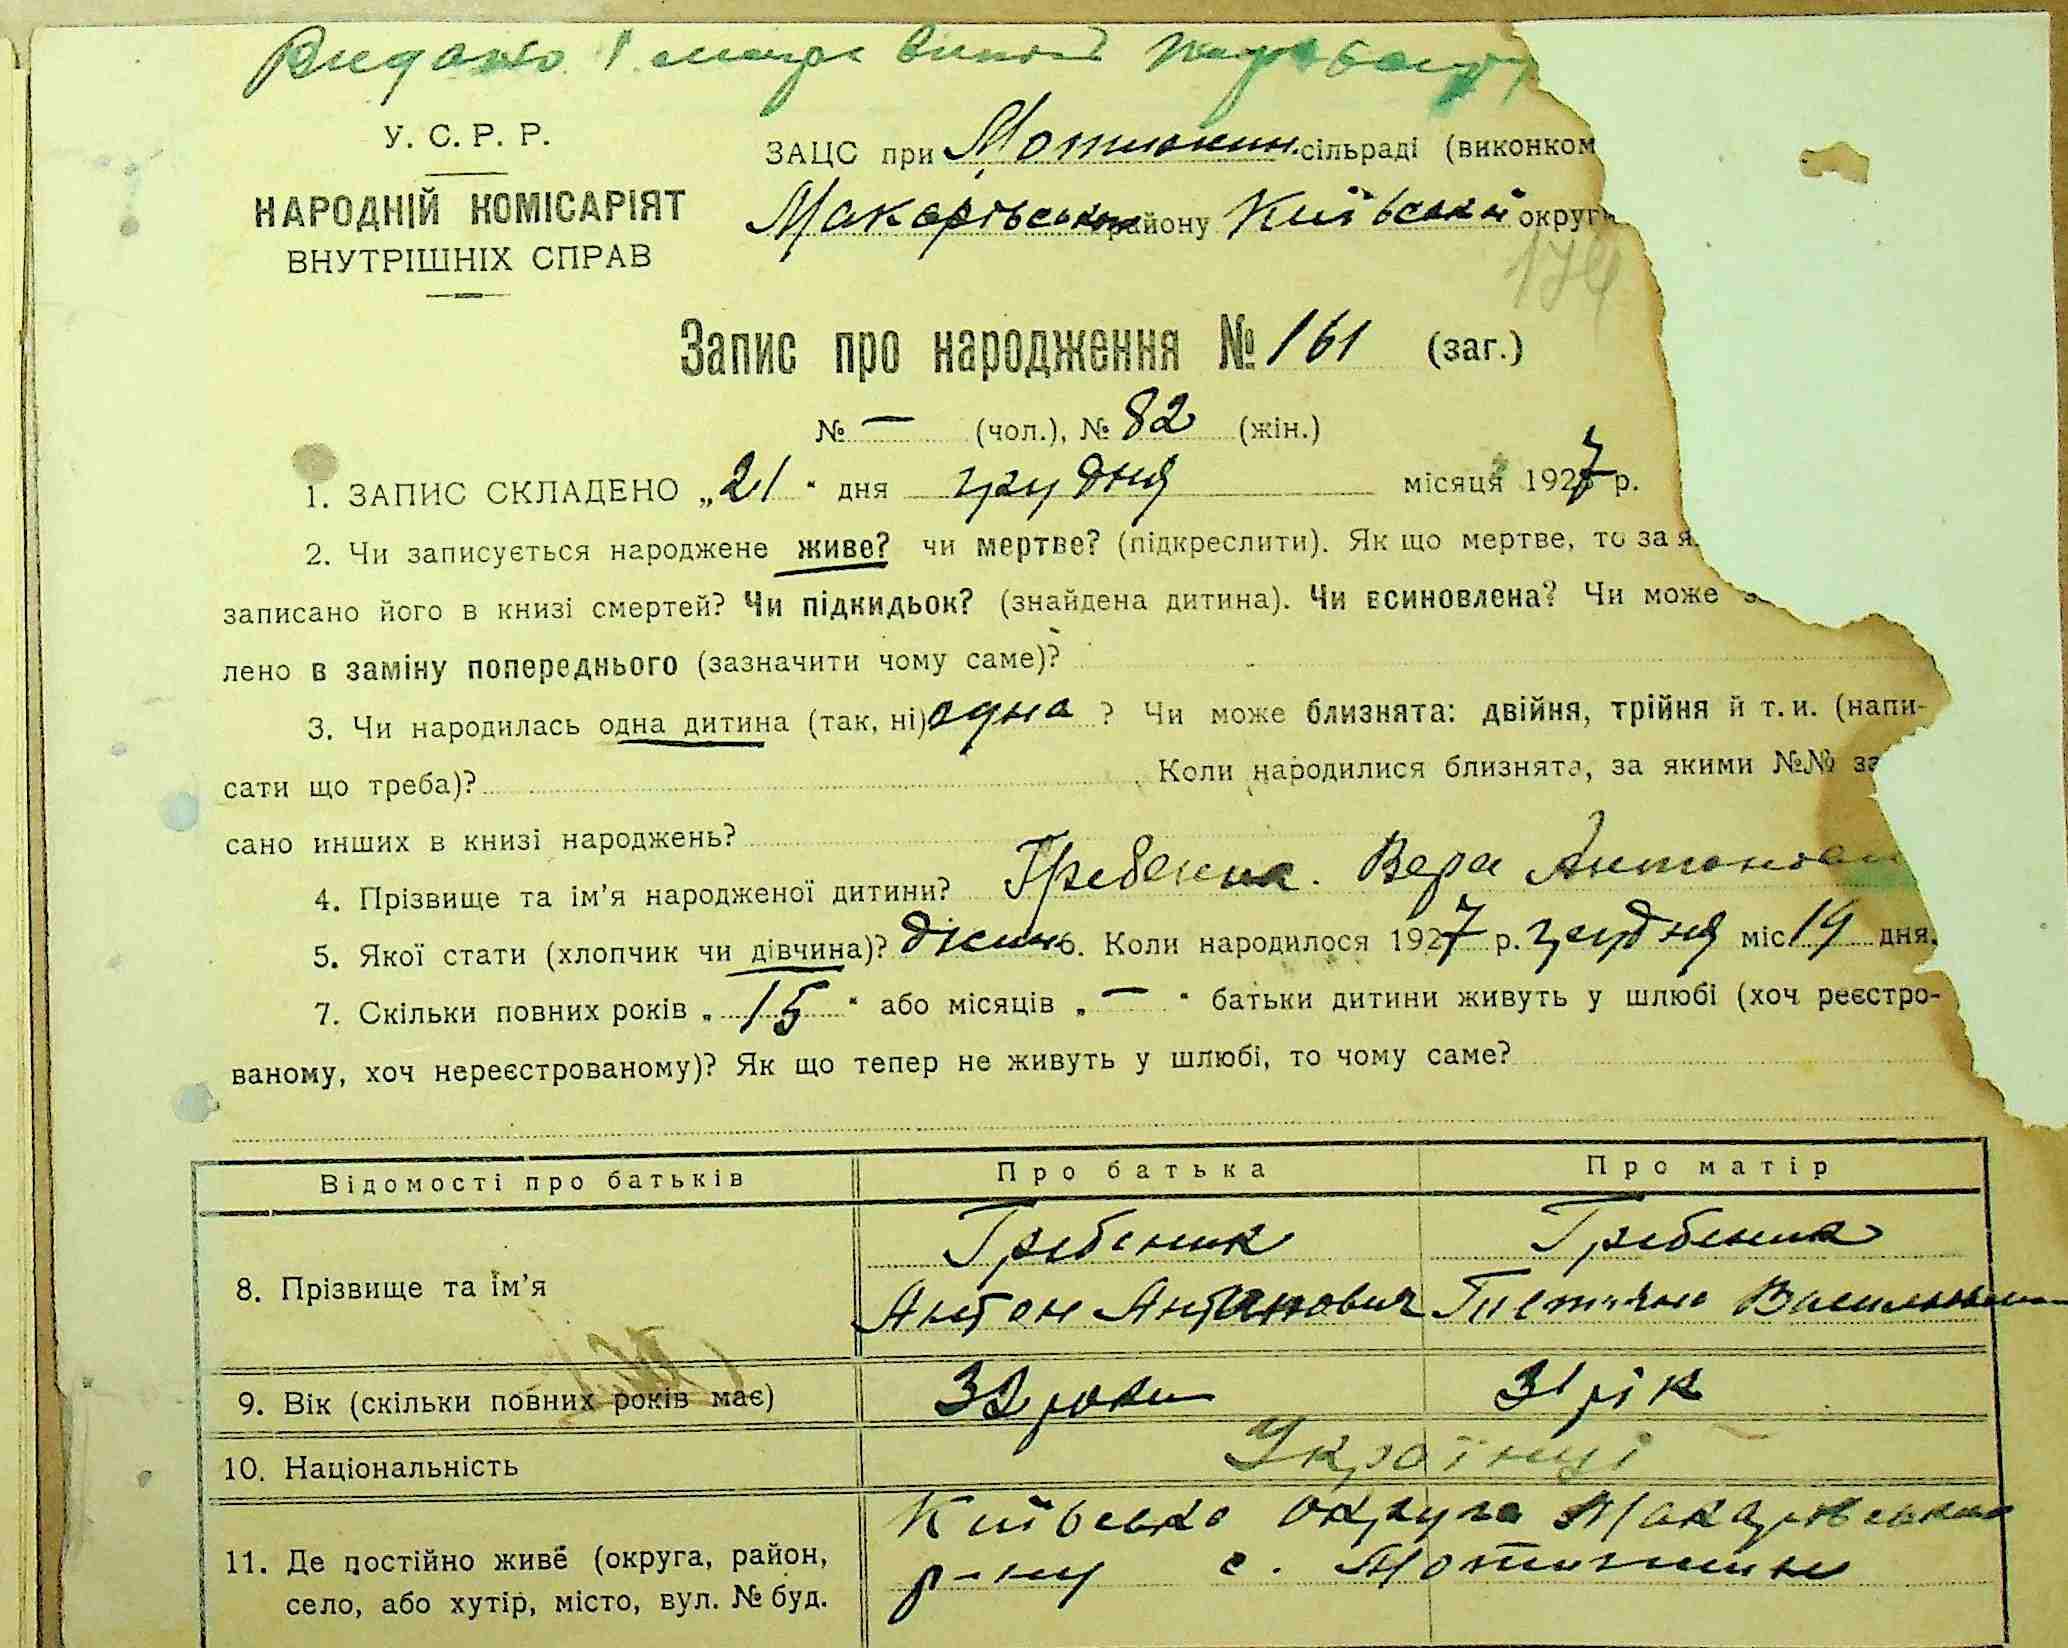 Видано
У. С. Р. Р.
НАРОДНІЙ КОМІСАРІЯТ
ВНУТРІШНІХ СПРАВ
ЗАЦС при Мотижин. сільраді (виконком
Макарівського району Київської округи
174
Запис про народження № 161 (заг.)
№ — (чол.), № 82 (жін.)
1. ЗАПИС СКЛАДЕНО „21“ дня грудня місяця 1927 р.
2. Чи записується народжене живе? чи мертве? (підкреслити). Як що мертве, то за я
записано його в книзі смертей? Чи підкидьок? (знайдена дитина). Чи всиновлена? Чи може
лено в заміну попереднього (зазначити чому саме)?
3. Чи народилась одна дитина (так, ні) одна ? Чи може близнята: двійня, трійня й т. и. (напи-
сати що треба)? Коли народилися близнята, за якими №№ за
сано инших в книзі народжень?
4. Прізвище та ім’я народженої дитини? Гребенник. Вера Антонов
5. Якої стати (хлопчик чи дівчина)? 6. Коли народилося 1927 р. грудня міс 19 дня.
7. Скільки повних років „15“ або місяців „—“ батьки дитини живуть у шлюбі (хоч реєстро-
ваному, хоч нереєстрованому)? Як що тепер не живуть у шлюбі, то чому саме?
Відомості про батьків Про батька Про матір
8. Прізвище та ім’я Гребеник Гребеник
Антон Антонович Тетяна Васильовна
9. Вік (скільки повних років має) 32 роки 31 рік
10. Національність Українці
11. Де постійно живе (округа, район, Київська округа Макарівського
село, або хутір, місто, вул. № буд. р-ну с. Мотижин